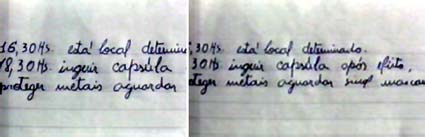 16,30Hs. está local determin
18,30Hs. ingerir capsula
proteger metais aguardar
,30Hs. está local determinado.
30Hs. ingerir capsula após efeito,
oteger metais aguardar sinal mascar